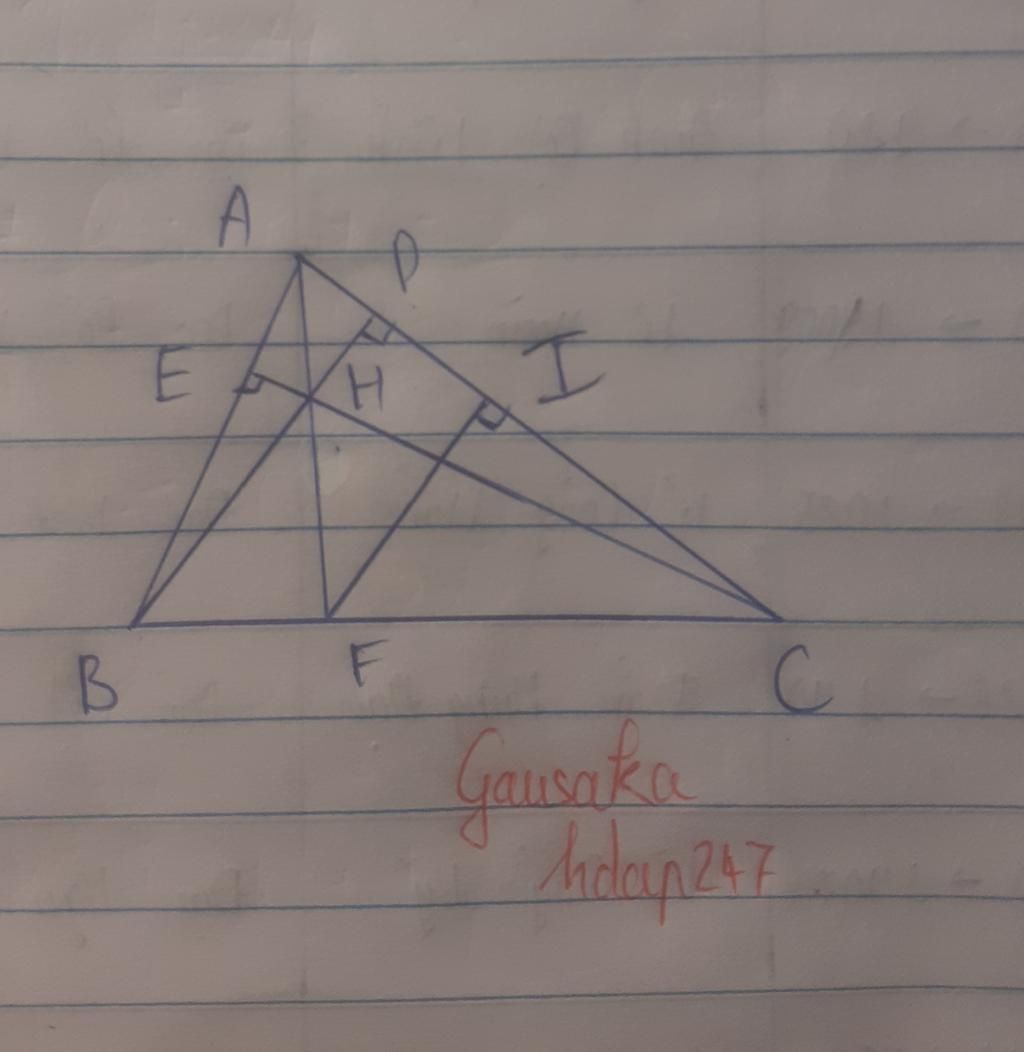 A
D
E
H
I
B
F
C
Gausaka
hdap247